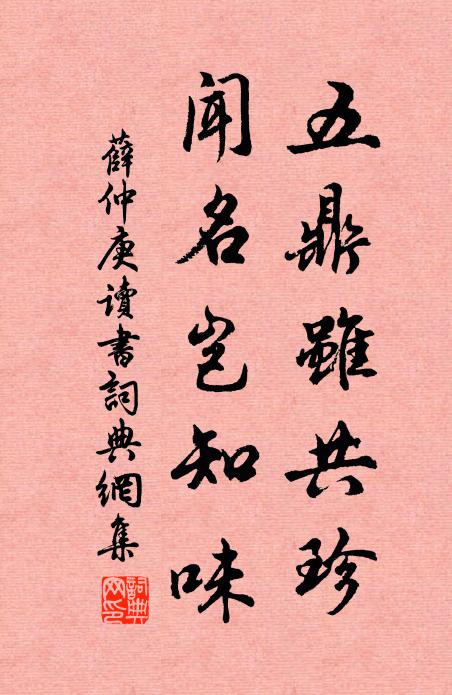 五鼎雖共珍
聞名岂知味
薛仲庚讀書詞典網集
詞典網印